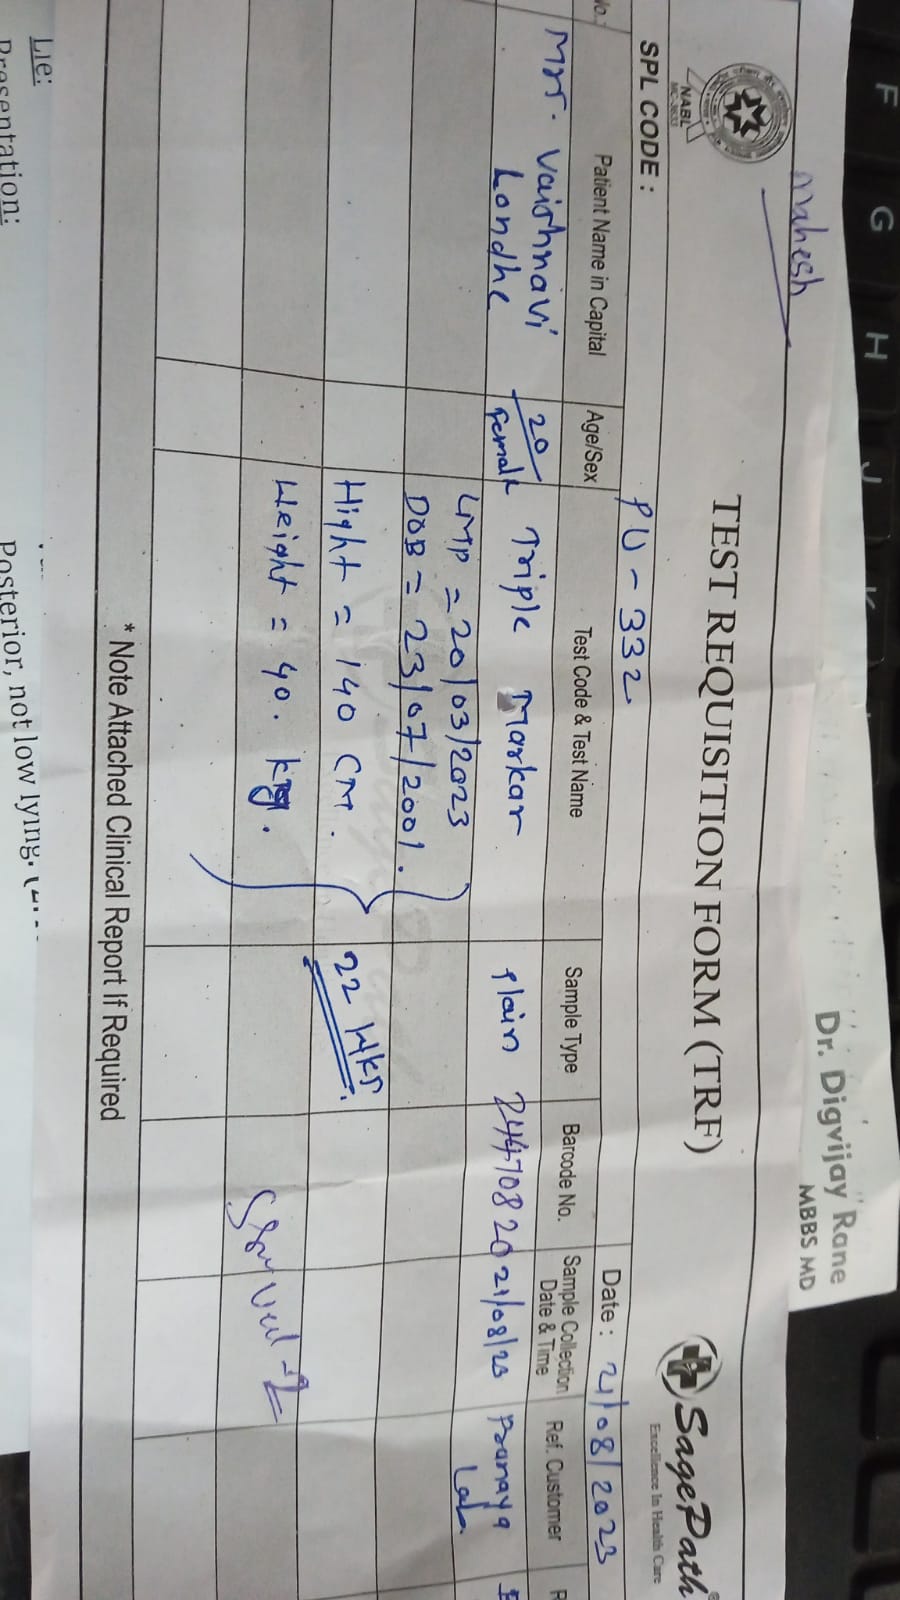 Mahesh
Dr. Digvijay Rane
MBBS MD
NABL
TEST REQUISITION FORM (TRF)
SagePath
Excellence In Health Care
SPL CODE : PU-332
Date : 21/08/2023
No.
Patient Name in Capital
Age/Sex
Test Code & Test Name
Sample Type
Barcode No.
Sample Collection
Date & Time
Ref. Customer
R
Mrs. Vaishnavi
Londhe
20
Female
Triple Markar
plain
24470820
21/08/23
Pranaya
Lab.
LMP = 20/03/2023
DOB = 23/07/2001.
Hight = 140 CM.
Weight = 40. kg.
22 Wks.
* Note Attached Clinical Report If Required
Lie:
Presentation:
Posterior, not low lying.
F
G
H
J
K